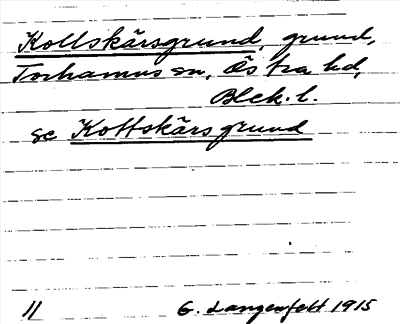 Kollskärsgrund, grund,
Torhamns sn, Östra hd,
Blek. l.
se Kottskärsgrund
11 G. Langenfelt 1915